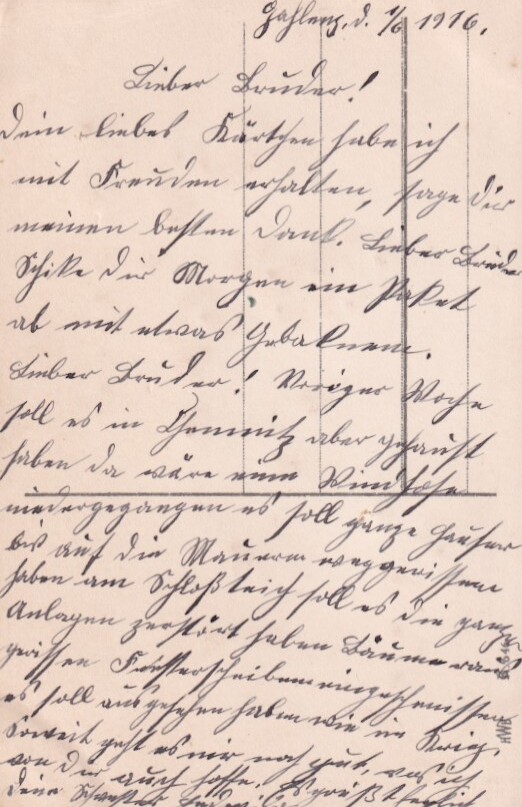 Gahlenz, d. 1/6 1916.
Lieber Bruder!
Dein liebes Kärtchen habe ich
mit Freuden erhalten, sage dir
meinen besten Dank. Lieber Bruder
Schike dir Morgen ein Paket
ab mit etwas Gebaknem.
Lieber Bruder! Voriger Woche
soll es in Chemnitz aber gehaust
haben da wäre eine Windhose
niedergegangen es soll ganze Häuser
bis auf die Mauern weggerissen
haben am Schloßteich soll es die ganzen
Anlagen zerstört haben Bäume raus
gerissen Fensterscheiben eingeschmissen
es soll ausgesehen haben wie im Krieg.
Soweit geht es mir noch gut, was ich
von dir auch hoffe. Es grüßt
Deine Schwester
HWB